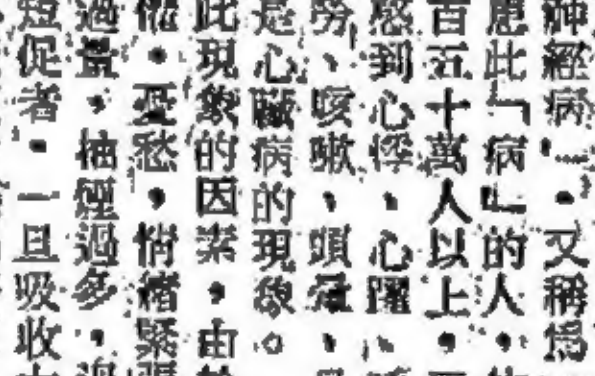 神經病」。又稱爲
患此「病」的人，
百五十萬人以上，
感到心悸、心躍、
勞、咳嗽、頭暈、
是心臟病的現象。
此現象的因素，由於
憂愁，情緒緊張
過量，抽煙過多，過
短促者。一旦吸收